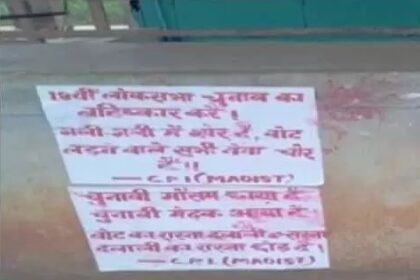 18वीं लोकसभा चुनाव का
बहिष्कार करें।
गली गली में शोर है, वोट
लड़ने वाले सभी नेता चोर
है।।
— CPI (MAOIST)
चुनावी मौसम छाया है
चुनावी मेंढक आया है
वोट का रास्ता दलाली का रास्ता
दलाली का रास्ता छोड़ दें।
— CPI (MAOIST)